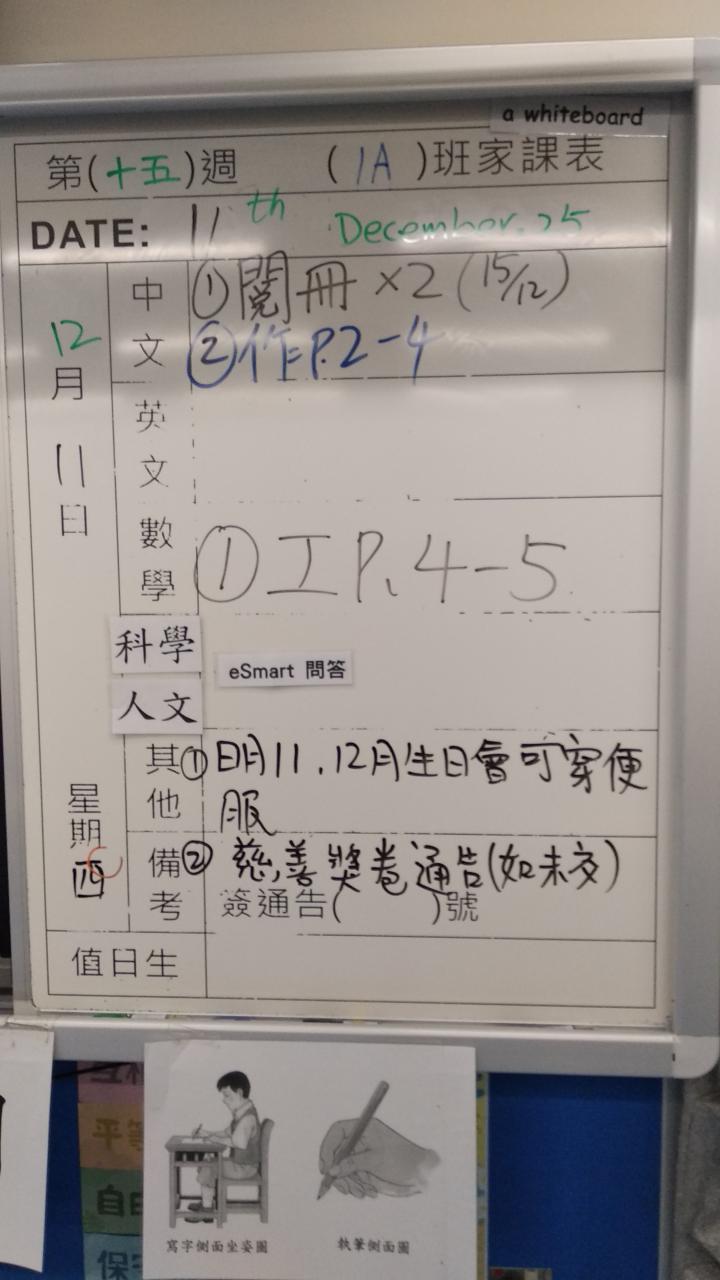 a whiteboard
第(十五)週 (1A)班家課表
DATE: 11th December. 25
12月11日
星期四
中文
①閱冊×2(15/12)
②作P.2-4
英文
數學
①工P.4-5
科學
eSmart 問答
人文
其他
①明11.12月生日會可穿便
服
備考
②慈善獎卷通告(如未交)
簽通告( )號
值日生
平等
自由
寫字側面坐姿圖
執筆側面圖